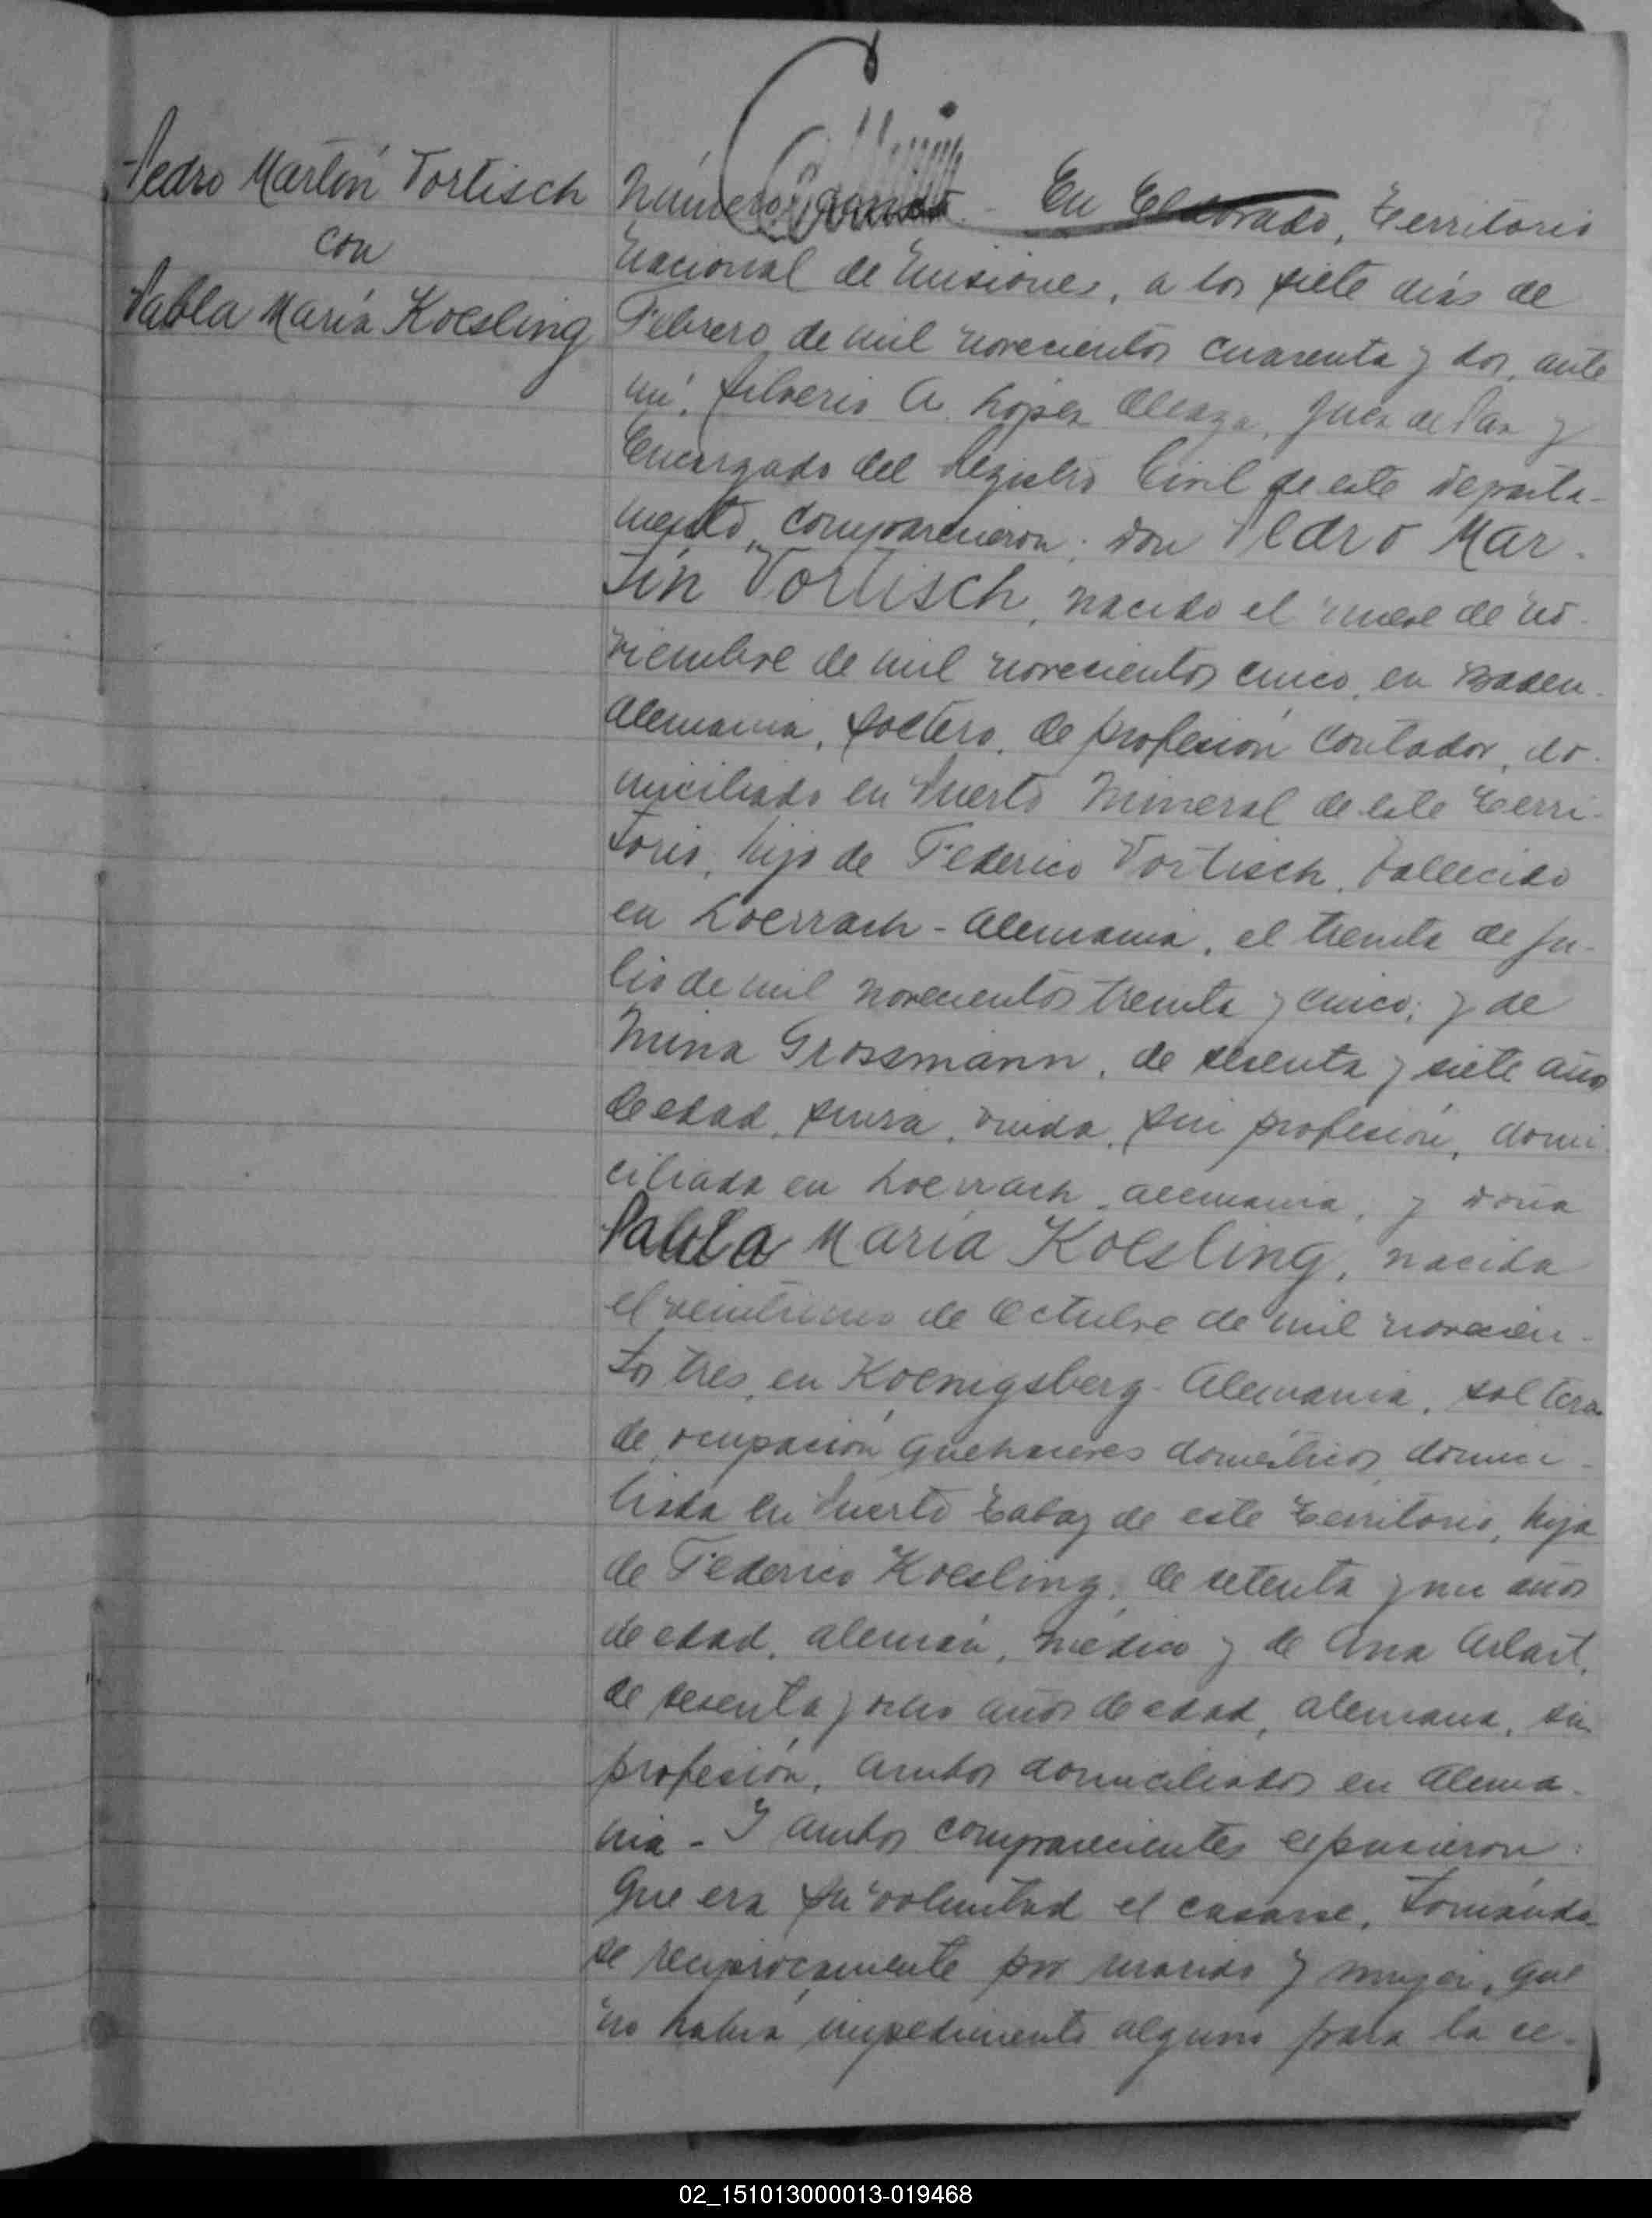 Pedro Martín Vortisch
con
Pabla María Koesling
Número. En Eldorado, Territorio
Nacional de Misiones, a los siete días de
Febrero de mil novecientos cuarenta y dos, ante
mí, Silverio A. López, Juez de Paz y
Encargado del Registro Civil de este Departa-
mento, comparecieron: don Pedro Mar-
tín Vortisch, nacido el nueve de no-
viembre de mil novecientos cinco, en Baden-
Alemania, soltero, de profesión contador, do-
miciliado en Puerto Mineral de este Terri-
torio, hijo de Federico Vortisch, fallecido
en Loerrach-Alemania, el treinta de Ju-
lio de mil novecientos treinta y cinco; y de
Mina Grossmann, de sesenta y siete años
de edad, suiza, viuda, sin profesión, domi-
ciliada en Loerrach-Alemania; y doña
Pabla María Koesling, nacida
el de Octubre de mil novecien-
tos tres, en Koenigsberg-Alemania, soltera
de ocupación quehaceres domésticos, domici-
liada en Puerto Tabay de este Territorio, hija
de Federico Koesling, de setenta y un años
de edad, alemán, médico y de Ana Arlart,
de sesenta y ocho años de edad, alemana, sin
profesión, ambos domiciliados en Alema-
nia - Y ambos comparecientes expusieron:
Que era su voluntad el casarse, tomándo
se recíprocamente por marido y mujer, que
no había impedimento alguno para la ce-
02_151013000013-019468